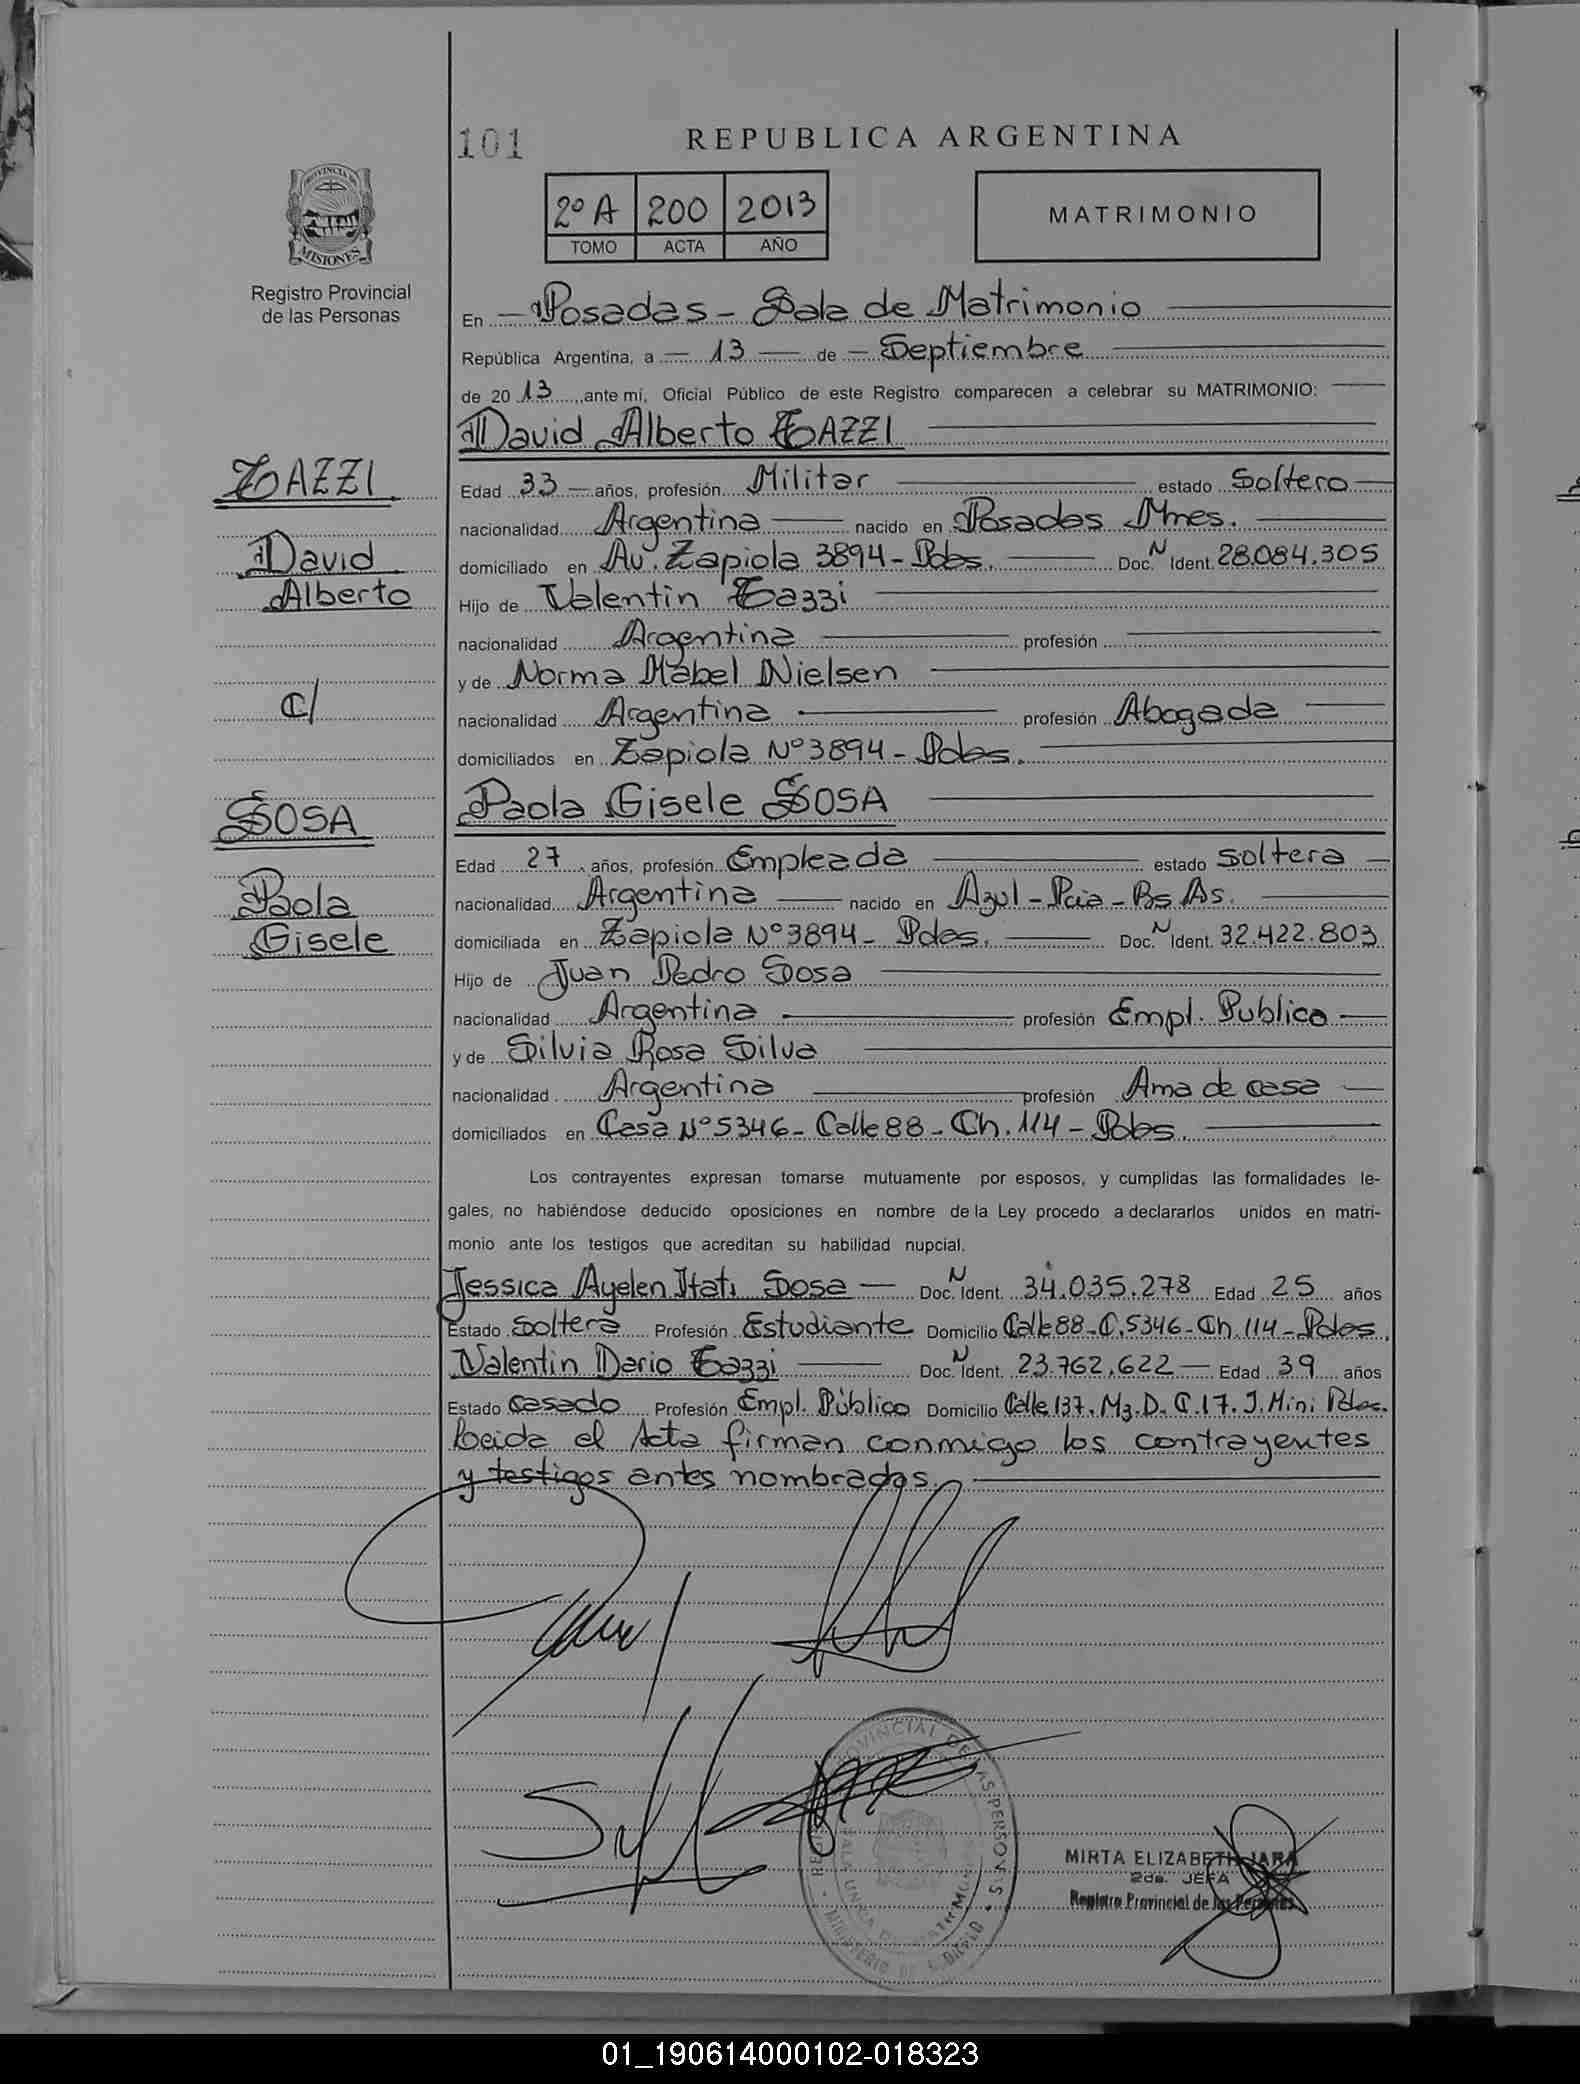 101
REPUBLICA ARGENTINA
2º A 200 2013
TOMO ACTA AÑO
MATRIMONIO
PROVINCIA DE
MISIONES
Registro Provincial
de las Personas
En Posadas - Sala de Matrimonio
República Argentina, a 13 de Septiembre
de 2013, ante mí, Oficial Público de este Registro comparecen a celebrar su MATRIMONIO:
David Alberto TAZZI
TAZZI
David
Alberto
C/
SOSA
Paola
Gisele
Edad 33 años, profesión Militar estado Soltero
nacionalidad Argentina nacido en Posadas Mnes.
domiciliado en Av. Zapiola 3894 - Pdas. Doc. N Ident. 28.084.305
Hijo de Valentin Tazzi
nacionalidad Argentina profesión
y de Norma Mabel Nielsen
nacionalidad Argentina profesión Abogada
domiciliados en Zapiola Nº 3894 - Pdas.
Paola Gisele SOSA
Edad 27 años, profesión Empleada estado soltera
nacionalidad Argentina nacido en Azul - Pcia - Bs As.
domiciliada en Zapiola Nº 3894 - Pdas. Doc. N Ident. 32.422.803
Hijo de Juan Pedro Sosa
nacionalidad Argentina profesión Empl. Publico
y de Silvia Rosa Silva
nacionalidad Argentina profesión Ama de casa
domiciliados en Casa Nº 5346 - Calle 88 - Ch. 114 - Pdas.
Los contrayentes expresan tomarse mutuamente por esposos, y cumplidas las formalidades le-
gales, no habiéndose deducido oposiciones en nombre de la Ley procedo a declararlos unidos en matri-
monio ante los testigos que acreditan su habilidad nupcial.
Jessica Ayelen Itati Sosa Doc. N Ident. 34.035.278 Edad 25 años
Estado Soltera Profesión Estudiante Domicilio Calle 88 - C. 5346 - Ch. 114 - Pdas.
Valentin Dario Tazzi Doc. N Ident. 23.762.622 Edad 39 años
Estado Casado Profesión Empl. Público Domicilio Calle 137. Mz. D. C. 17. I. Mini Pdas.
Leida el Acta firman conmigo los contrayentes
y testigos antes nombrados.
MIRTA ELIZABETH JARA
2da. JEFA
Registro Provincial de las Personas
01_190614000102-018323